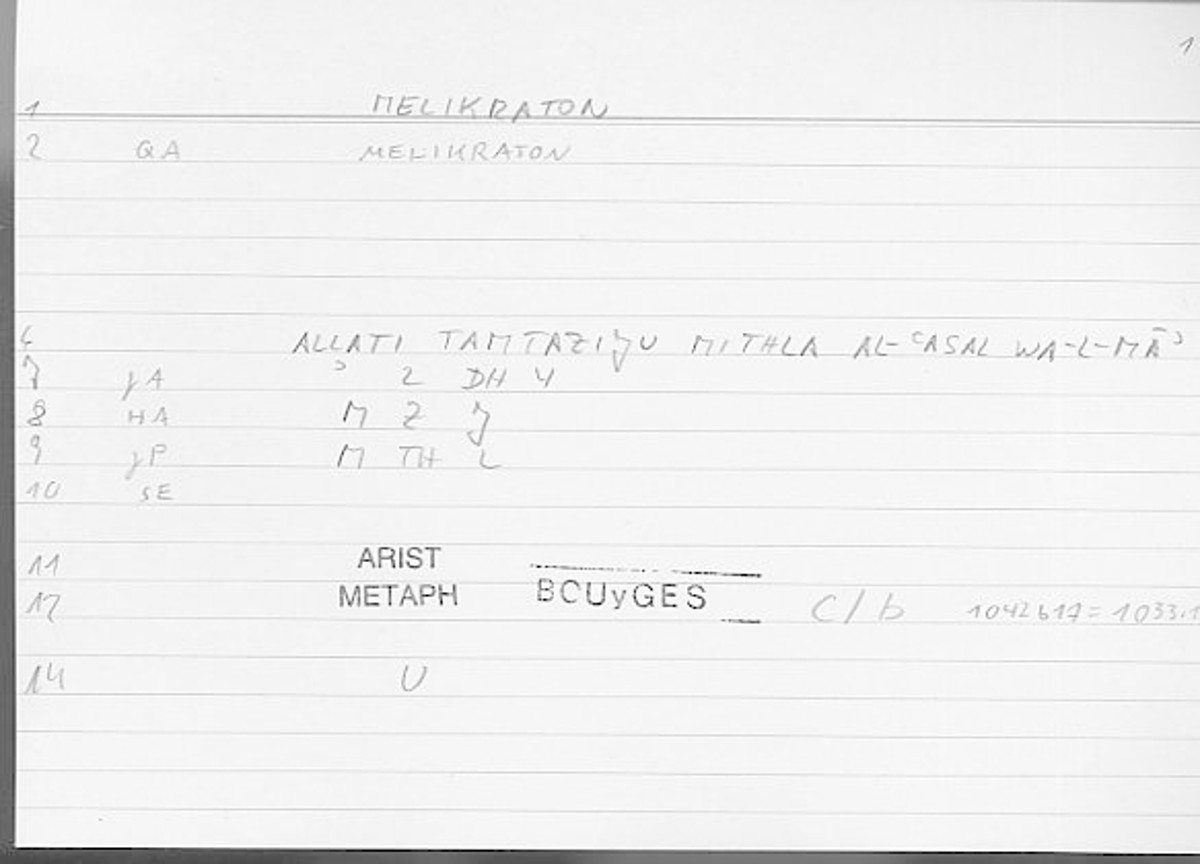 1
1 MELIKRATON
2 QA MELIKRATON
6 ALLATI TAMTAZIJU MITHLA AL-ʿASAL WA-L-MĀʾ
7 jA ʾ 2 DH 4
8 HA M Z J
9 jP M TH L
10 SE
11 ARIST
12 METAPH BOUyGES C/b 1042b17=1033.1
14 U